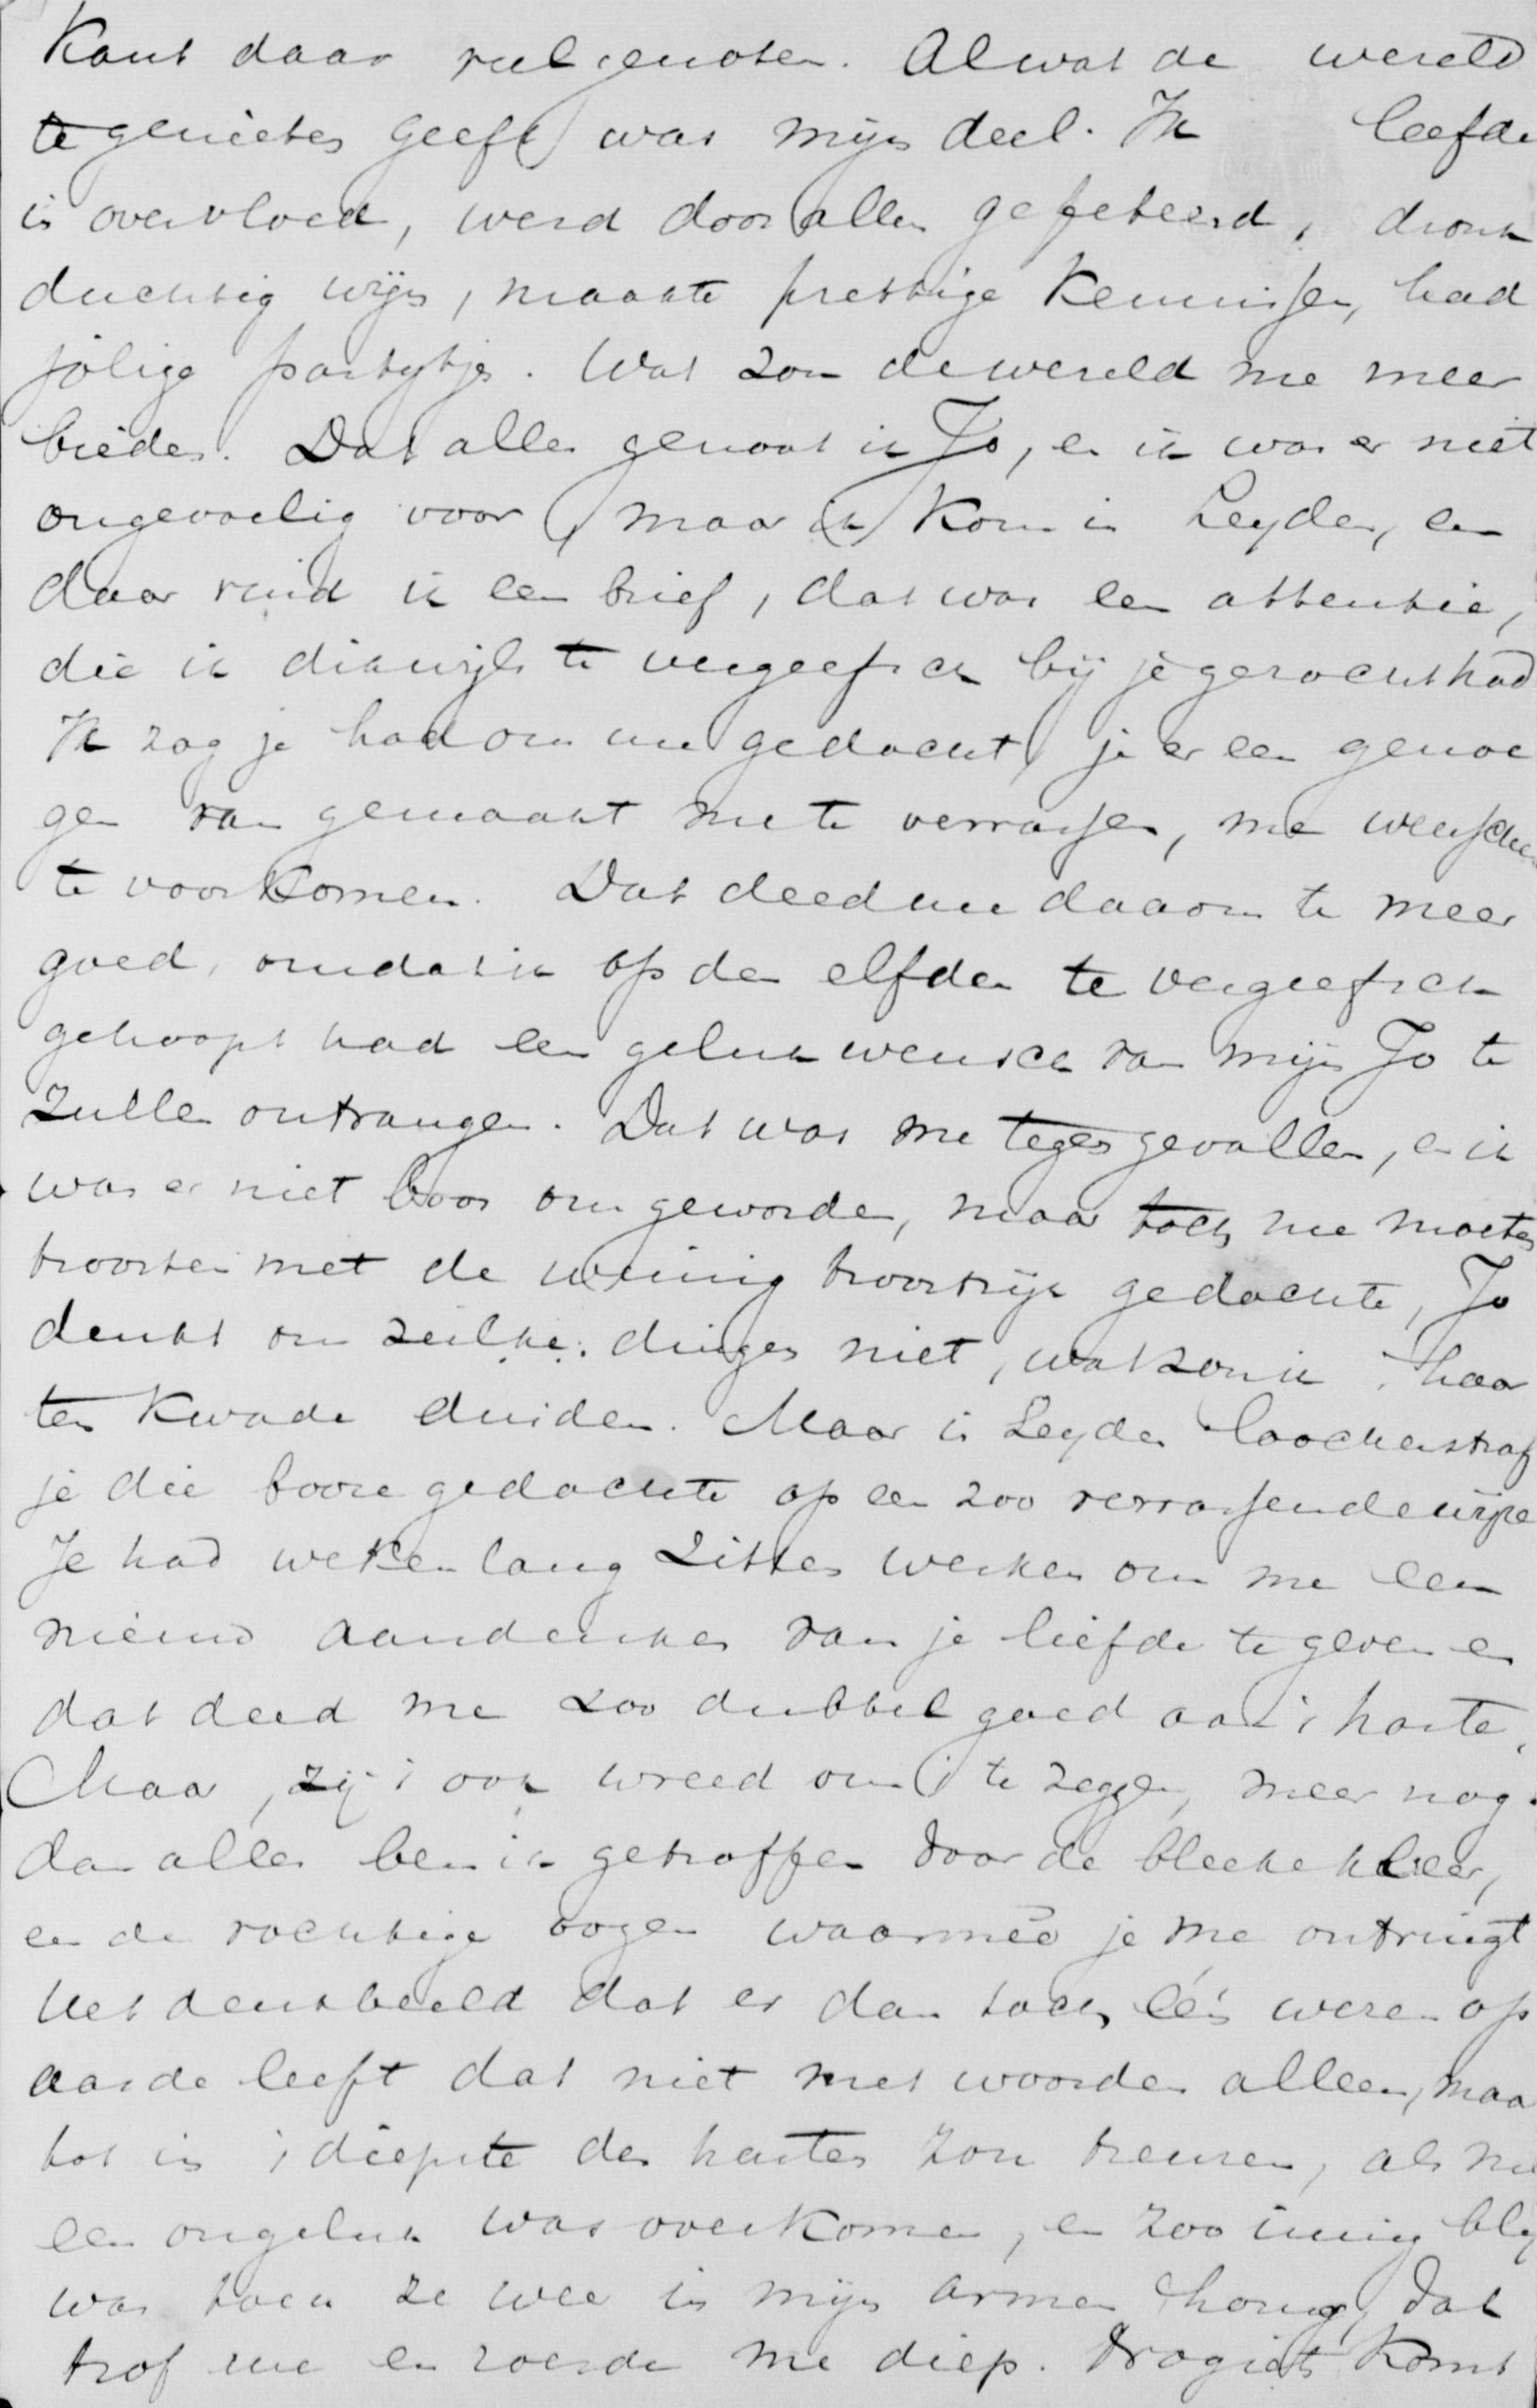 kant daar veel genoten. Al wat de wereld
te genieten geeft was mijn deel. Ik leefde
in overvloed, werd door allen gefeteerd, dronk
duchtig wijn, maakte prettige kennissen, had
jolige partytjes. Wat zou de wereld me meer
bieden. Dat alles genoot ik Jo, en ik was er niet
ongevoelig voor, maar ik kom in Leyden, en
daar vind ik een brief, dat was een attentie,
die ik dikwijls te vergeefsch bij je gezocht had
Ik zag je had om me gedacht, je er een genoe
gen van gemaakt me te verrassen, me wenschen
te voorkomen. Dat deed me daarom te meer
goed, omdat ik op den elfden te vergeefsch
gehoopt had een gelukwensch van mijn Jo te
zullen ontvangen. Dat was me tegen gevallen, en ik
was er niet boos om geworden, maar toch me moeten
troosten met de weinig troostrijk gedachte, Jo
denkt om zulke dingen niet, wat zou ik haar
ten kwade duiden. Maar in Leyden loochenstraf
je die booze gedachte op een zoo verrassende wijze
Je had weken lang zitten werken om me een
nieuw aandenken van je liefde te geven en
dat deed me zoo dubbel goed aan 't harte.
Maar, zij 't ook wreed om 't te zeggen, meer nog
dan alles ben ik getroffen door de bleeke kleur,
en de vochtige oogen waarmeê je me ontvingt
Het denkbeeld dat er dan toch één wezen op
aarde leeft dat niet met woorden alleen, maar
tot in 't diepste des hartes zou treuren, als me
een ongeluk was overkomen, en zoo innig bly
was toen ze weer in mijn armen hong, dat
trof me en roerde me diep. Tragiesch komt